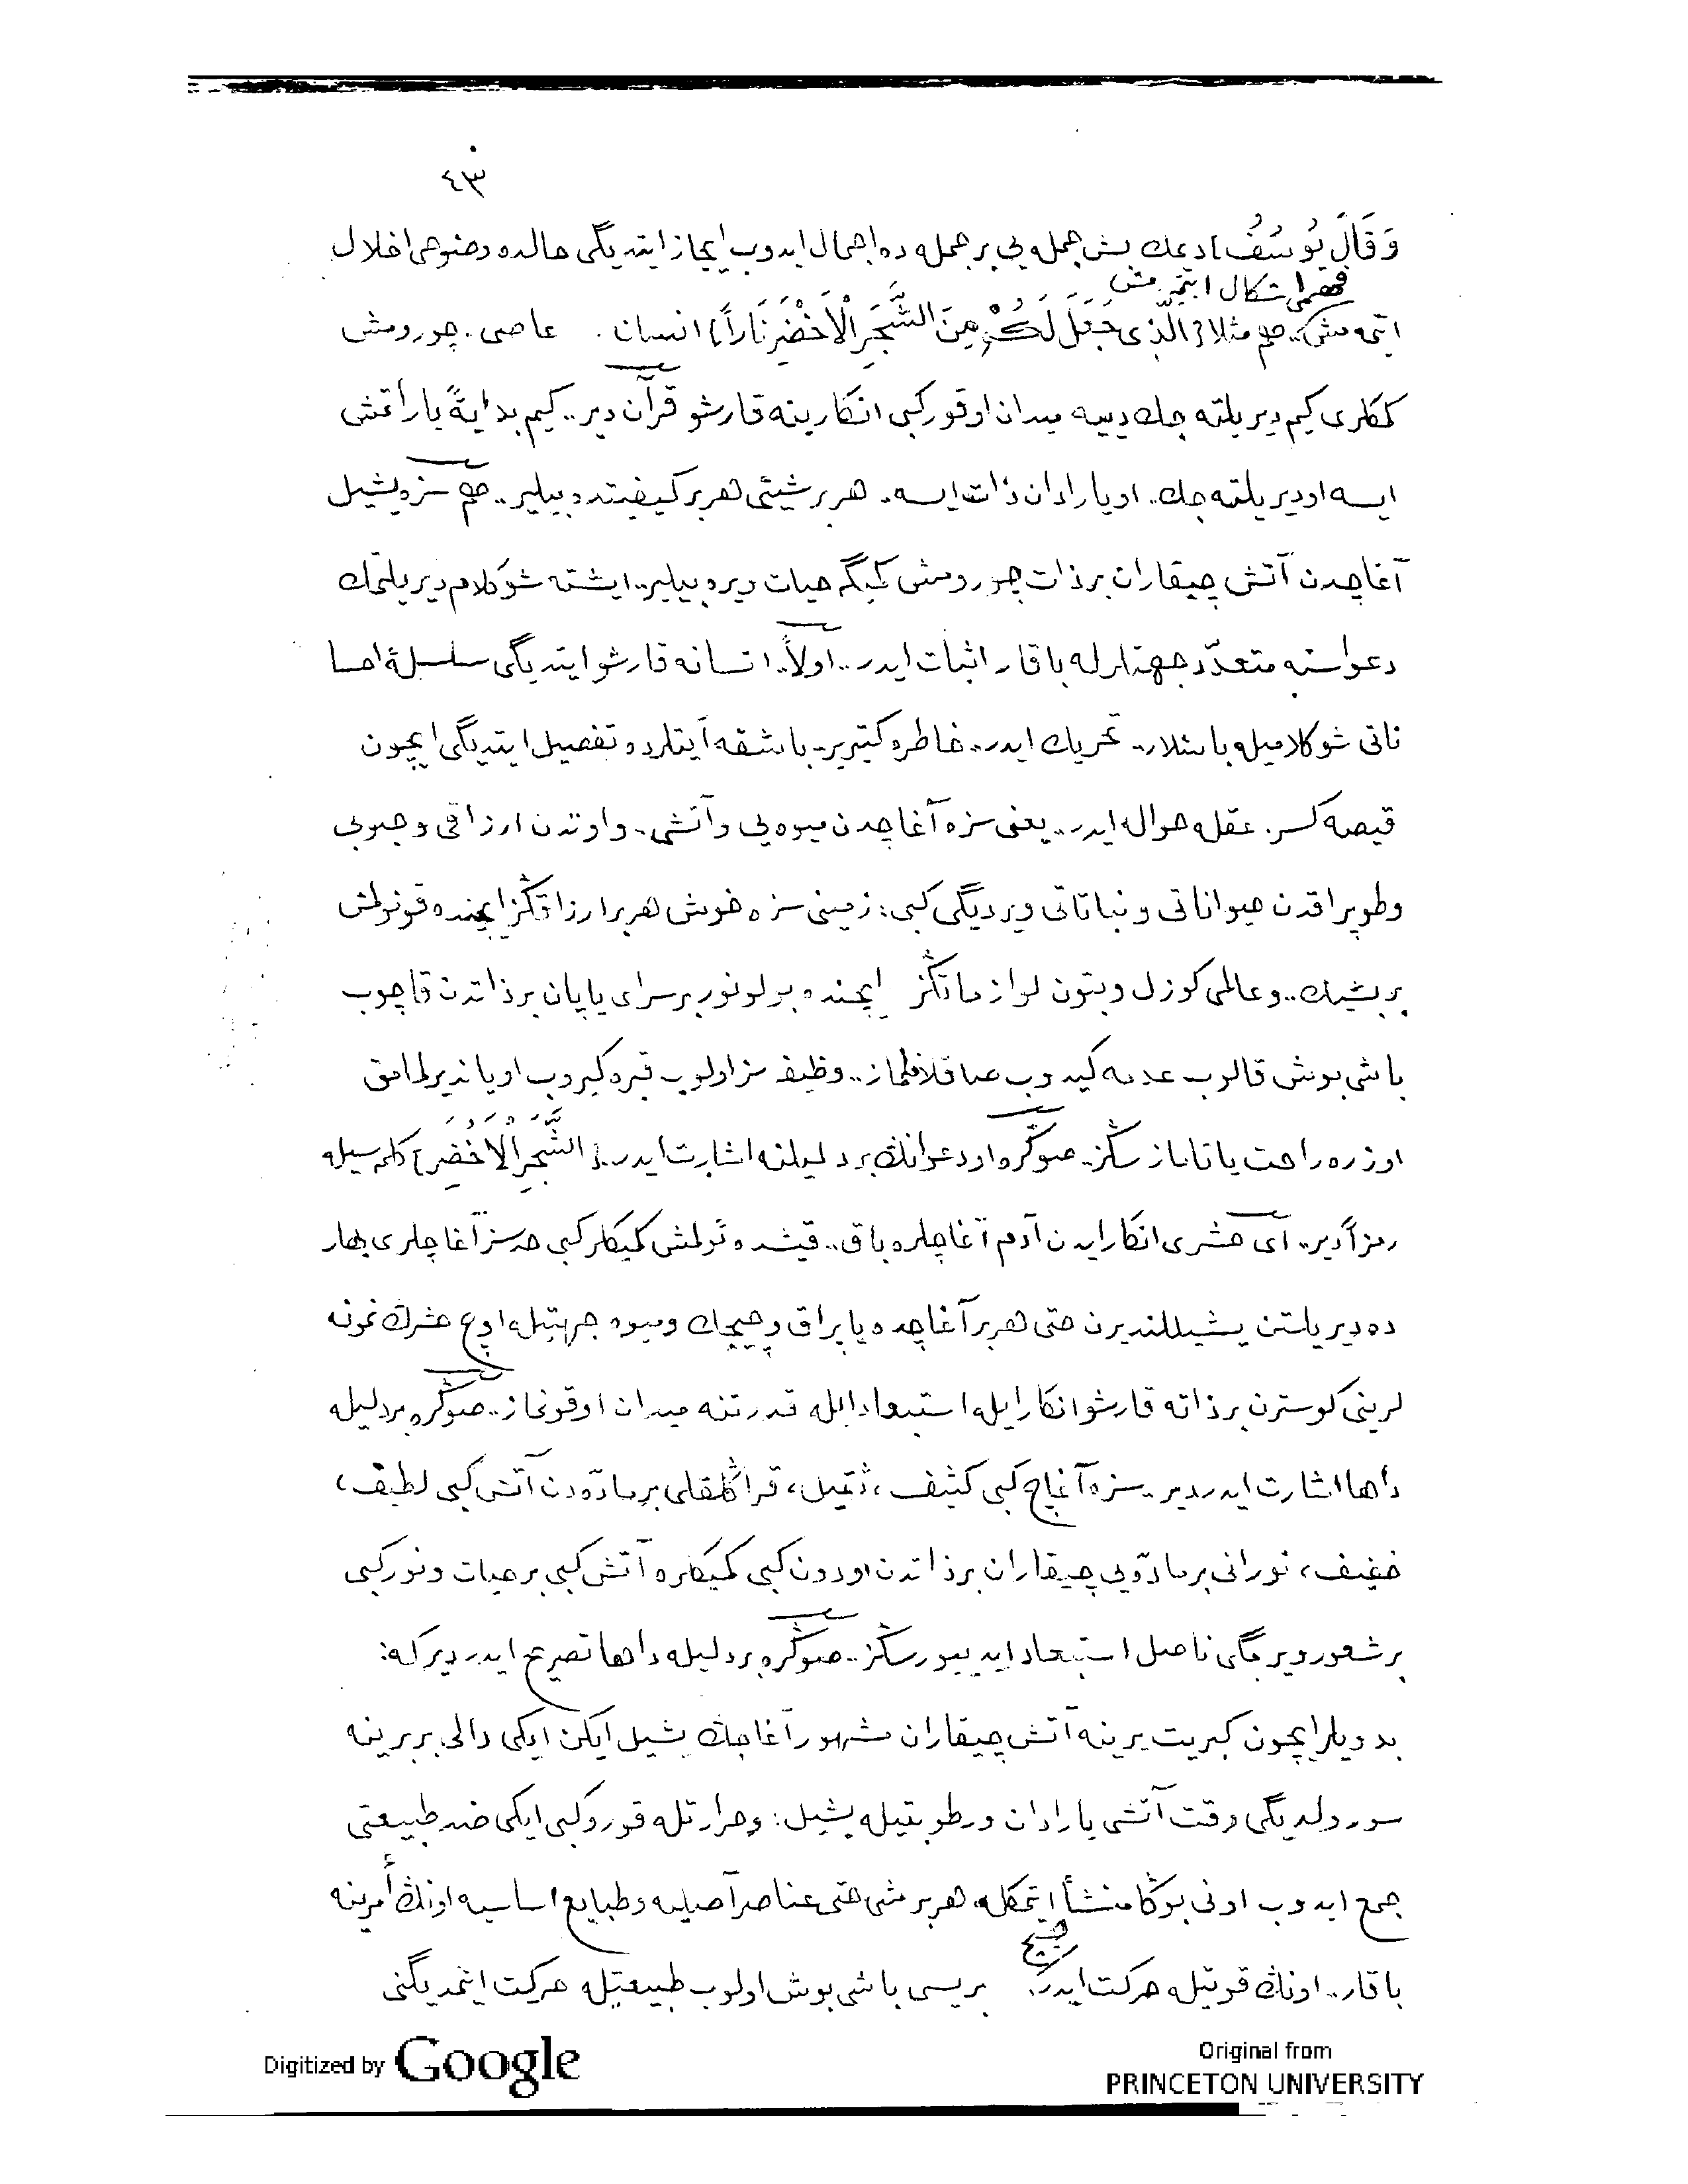 ٤٣
وَقَالَ يُوسُفُ ادعك بش جمله يى بر جمله ده اجمال ايدوب ايجاز ايتديگى حالده وضوحى اخلال
فهمى اشكال ايتمه مش
ايتمه مش.. هم مثلا ﴿ اَلَّذِى جَعَلَ لَكُمْ مِنَ الشَّجَرِ الْاَخْضَرِ نَاراً ﴾ انسان . عاصى . چورومش
ككلرى كيم ديريلته جك ديه ميدان اوقور كبى انكارينه قارشو قرآن دير.. كيم بدايةً ياراتمش
ايسه او ديريلته جك.. او يارادان ذات ايسه. هر بر شيئى هر بر كيفيتده بيلير.. هم سزه يشيل
آغاجدن آتش چيقاران بر ذات چورومش كميگه حيات ويره بيلير.. ايشته شو كلام ديريلتمك
دعواسنه متعدّد جهتلرله باقار اثبات ايدر.. اولاً.. انسانه قارشو ايتديگى سلسلۀ احسا
ناتى شو كلاميله باشلار.. تحريك ايدر.. خاطره كتيرير.. باشقه آيتلرده تفصيل ايتديگى ايچون
قيصه كسر. عقله حواله ايدر.. يعنى سزه آغاجدن ميوه يى و آتشى.. و اوتدن ارزاقى و حبوبى
وطوپراقدن حيواناتى و نباتاتى ويرديگى كبى: زمينى سزه خوش هر بر ارزاقكز ايچنده قونولمش
بر بشيك.. و عالمى كوزل و بتون لوازماتكز ايچنده بولونور بر سراى ياپان بر ذاتدن قاچوب
باشى بوش قالوب عدمه كيدوب صاقلانلماز.. وظيفه سز اولوب قبره كيروب اوياندير لمامق
اوزره راحت ياتاماز سكز.. صوكره او دعوانك بر دليلنه اشارت ايدر.. ﴿ الشَّجَرِ الْاَخْضَرِ ﴾ كلمه سيله
رمزاً دير.. اى حشرى انكار ايدن آدم آغاچلره باق.. قيشده ئولمش كميكلر كبى حدسز آغاچلرى بهار
ده ديريلتن يشيللنديرن حتى هر بر آغاجده ياپراق و چيچك و ميوه جهتيله اوچ حشرك نمونه
لرينى كوسترن بر ذاته قارشو انكار ايله استبعاد ايله قدرتنه ميدان اوقونماز.. صوكره بر دليله
داها اشارت ايدر دير.. سزه آغاج كبى كثيف ، ثقيل ، قراكلقلى بر مادّه دن آتش كبى لطيف ،
خفيف ، نورانى بر مادّه يى چيقاران بر ذاتدن اودون كبى كميكلره آتش كبى بر حيات و نور كبى
بر شعور ويرمگى ناصل استبعاد ايدييورسكز.. صوكره بر دليله داها تصريح ايدر دير كه:
بدويلر ايچون كبريت يرينه آتش چيقاران مشهور آغاجك يشيل ايكن ايكى دالى بربرينه
سورولديگى وقت آتشى يارادان و رطوبتيله يشيل: و حرارتله قورو كبى ايكى ضد طبيعتى
جمع ايدوب اونى بوكا منشأ ايتمكله هر بر شى حتى عناصر اصليه و طبايع اساسيه اونك أمرينه
باقار.. اونك قوتيله حركت ايدر. هيچ بريسى باشى بوش اولوب طبيعتيله حركت ايتمديگنى
Digitized by Google
Original from
PRINCETON UNIVERSITY